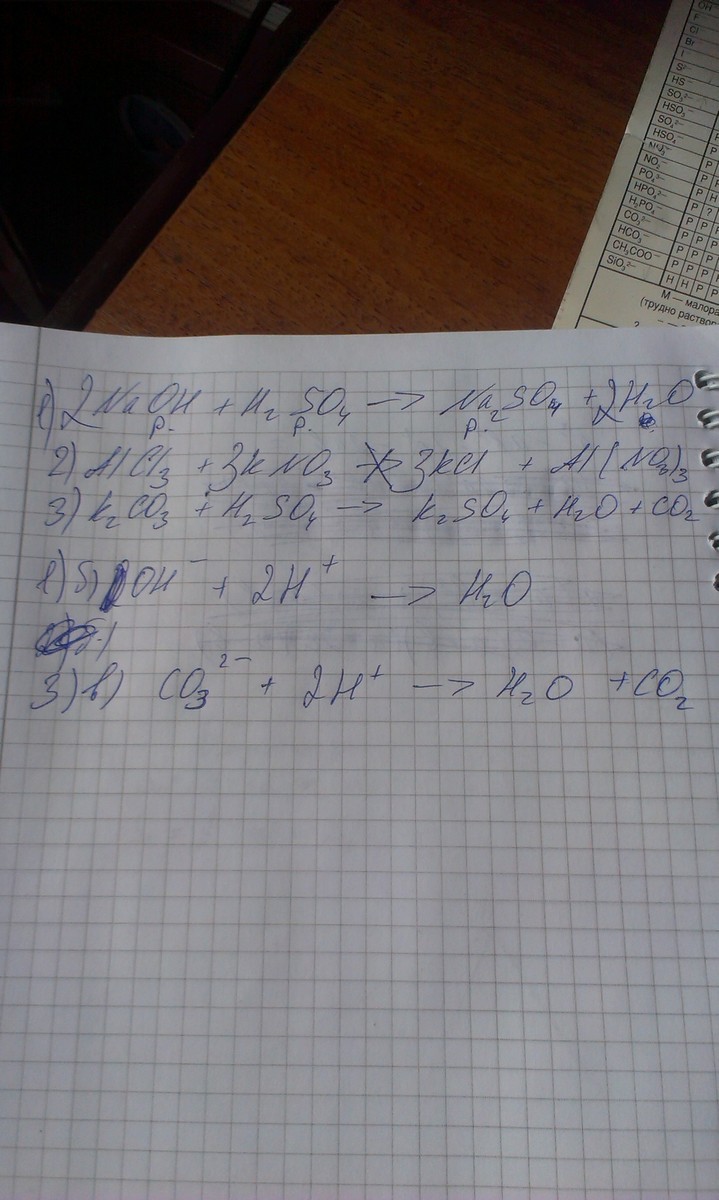 OH⁻
F⁻
Cl⁻
Br⁻
I⁻
S²⁻
HS⁻
SO₃²⁻
HSO₃⁻
SO₄²⁻
HSO₄⁻
NO₃⁻
NO₂⁻
PO₄³⁻ Р
HPO₄²⁻ Р
H₂PO₄⁻ Р ?
CO₃²⁻ Р Р
HCO₃⁻ Р Р
CH₃COO⁻ Р Р Р
SiO₃²⁻ Н Н Р Р
М — малора
(трудно раствор
1) 2NaOH + H₂SO₄ → Na₂SO₄ + 2H₂O
р. р. р.
2) AlCl₃ + 3KNO₃ ↛ 3KCl + Al(NO₃)₃
3) K₂CO₃ + H₂SO₄ → K₂SO₄ + H₂O + CO₂
1) б) OH⁻ + 2H⁺ → H₂O
3) в) CO₃²⁻ + 2H⁺ → H₂O + CO₂